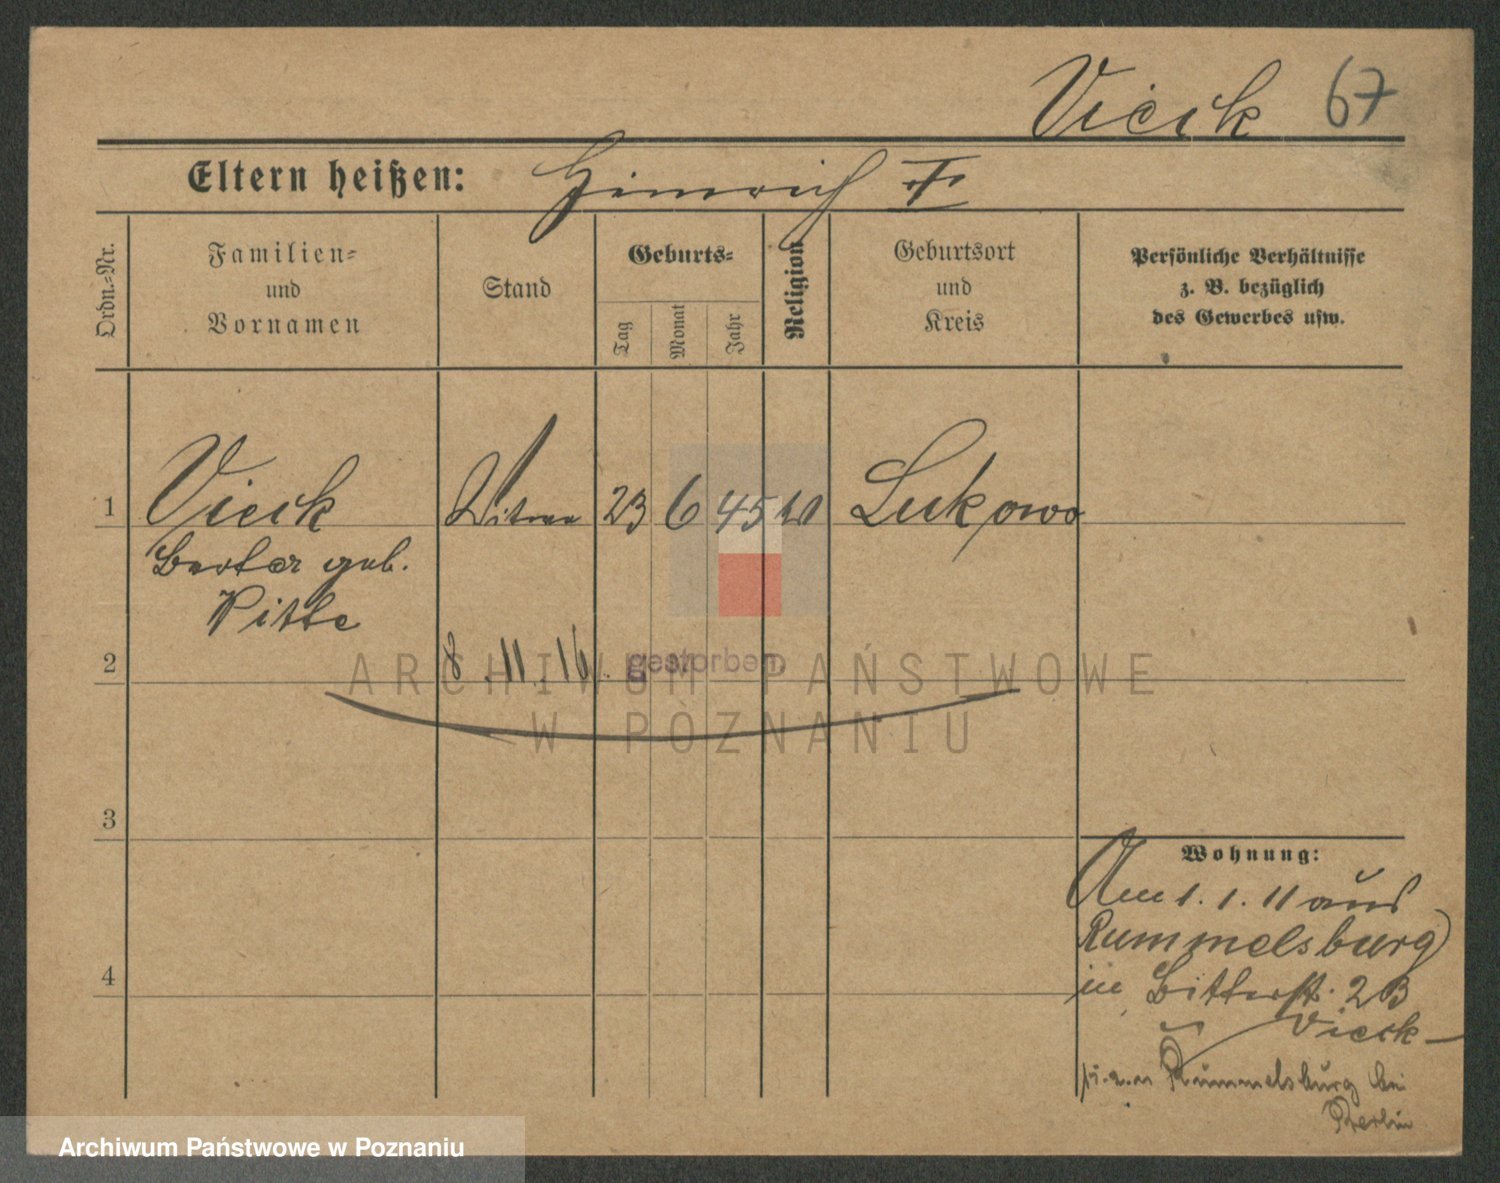 Vieck 67
Eltern heißen: Heinrich †
Ordn.-Nr.
Familien-
und
Vornamen
Stand
Geburts-
Tag
Monat
Jahr
Religion
Geburtsort
und
Kreis
Persönliche Verhältnisse
z. B. bezüglich
des Gewerbes usw.
1 Vieck Witwe 23 6 45 Lukowo
geb.
2 8. 11. 16. gestorben.
ARCHIWUM PAŃSTWOWE
W POZNANIU
3
Wohnung:
Am 1. 1. 11 aus
Rummelsburg
4 in 2 B
Vieck
Rummelsburg bei
Berlin
Archiwum Państwowe w Poznaniu